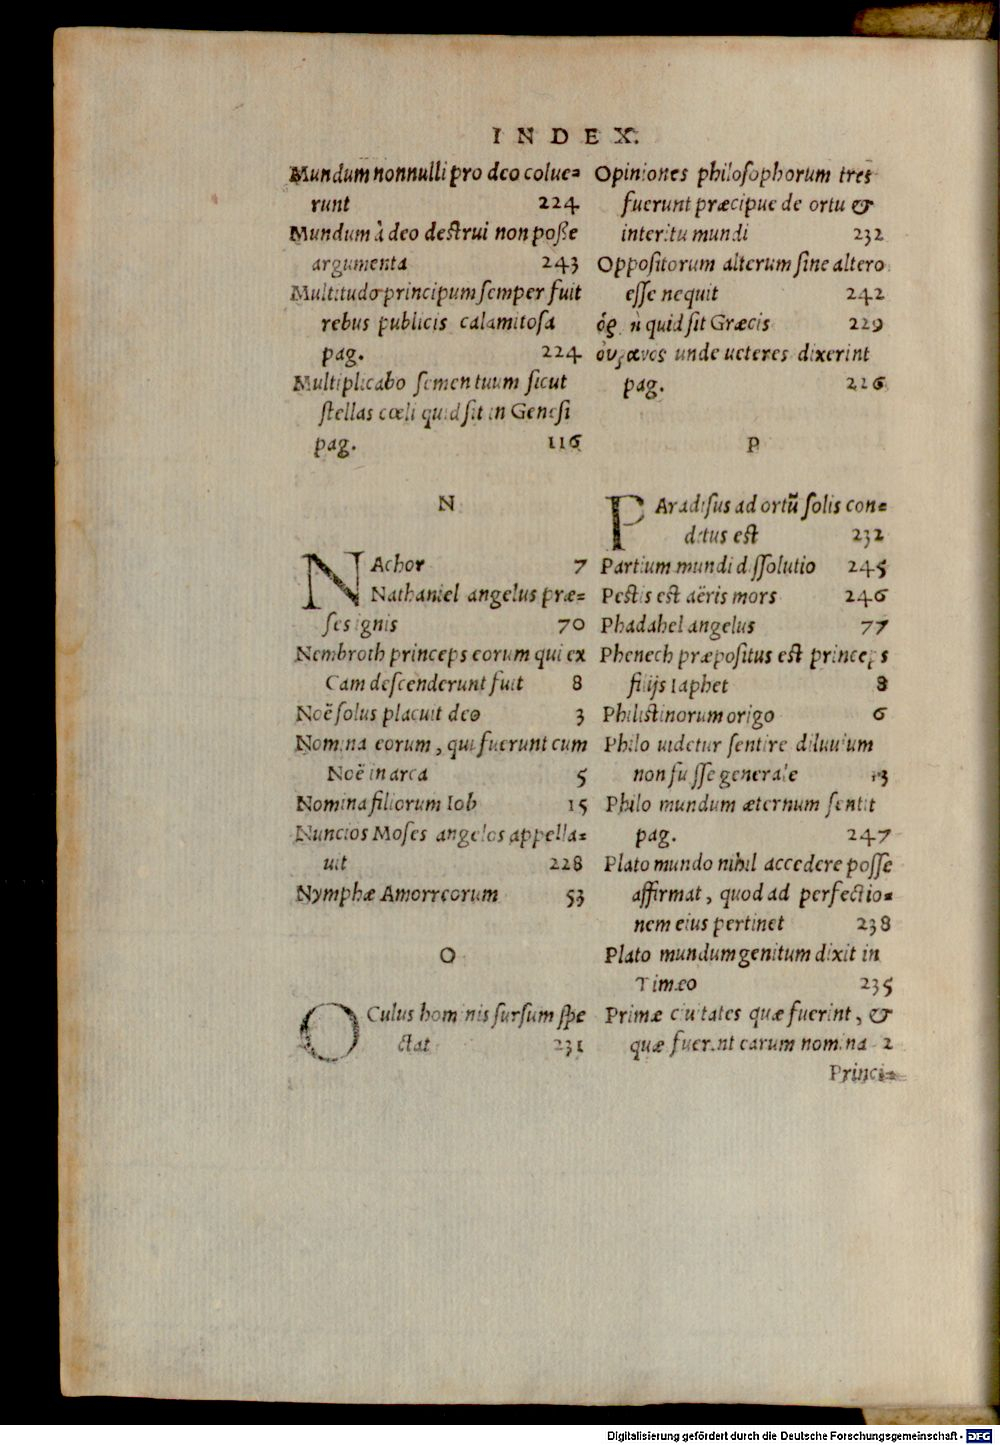 INDEX.
Mundum nonnulli pro deo colue=
runt 224
Mundum à deo destrui non poße
argumenta 243
Multitudo principum semper fuit
rebus publicis calamitosa
pag. 224
Multiplicabo semen tuum sicut
stellas cœli quid sit in Genesi
pag. 116
N
NAchor 7
Nathaniel angelus præ=
ses ignis 70
Nembroth princeps eorum qui ex
Cam descenderunt fuit 8
Noë solus placuit deo 3
Nomina eorum, qui fuerunt cum
Noë in arca 5
Nomina filiorum Iob 15
Nuncios Moses angelos appella=
uit 228
Nymphæ Amorreorum 53
O
OCulus hominis sursum spe
ctat 231
Opiniones philosophorum tres
fuerunt præcipue de ortu &
interitu mundi 232
Oppositorum alterum sine altero
esse nequit 242
quid sit Græcis 229
οὐρανος unde ueteres dixerint
pag. 226
P
PAradisus ad ortũ solis con=
ditus est 232
Partium mundi dissolutio 245
Pestis est aëris mors 246
Phadahel angelus 77
Phenech præpositus est princeps
filijs Iaphet 8
Philistinorum origo 6
Philo uidetur sentire diluuium
non fuisse generale 13
Philo mundum æternum sentit
pag. 247
Plato mundo nihil accedere posse
affirmat, quod ad perfectio=
nem eius pertinet 238
Plato mundum genitum dixit in
Timæo 235
Primæ ciuitates quæ fuerint, &
quæ fuerint earum nomina 2
Princi=
Digitalisierung gefördert durch die Deutsche Forschungsgemeinschaft - DFG